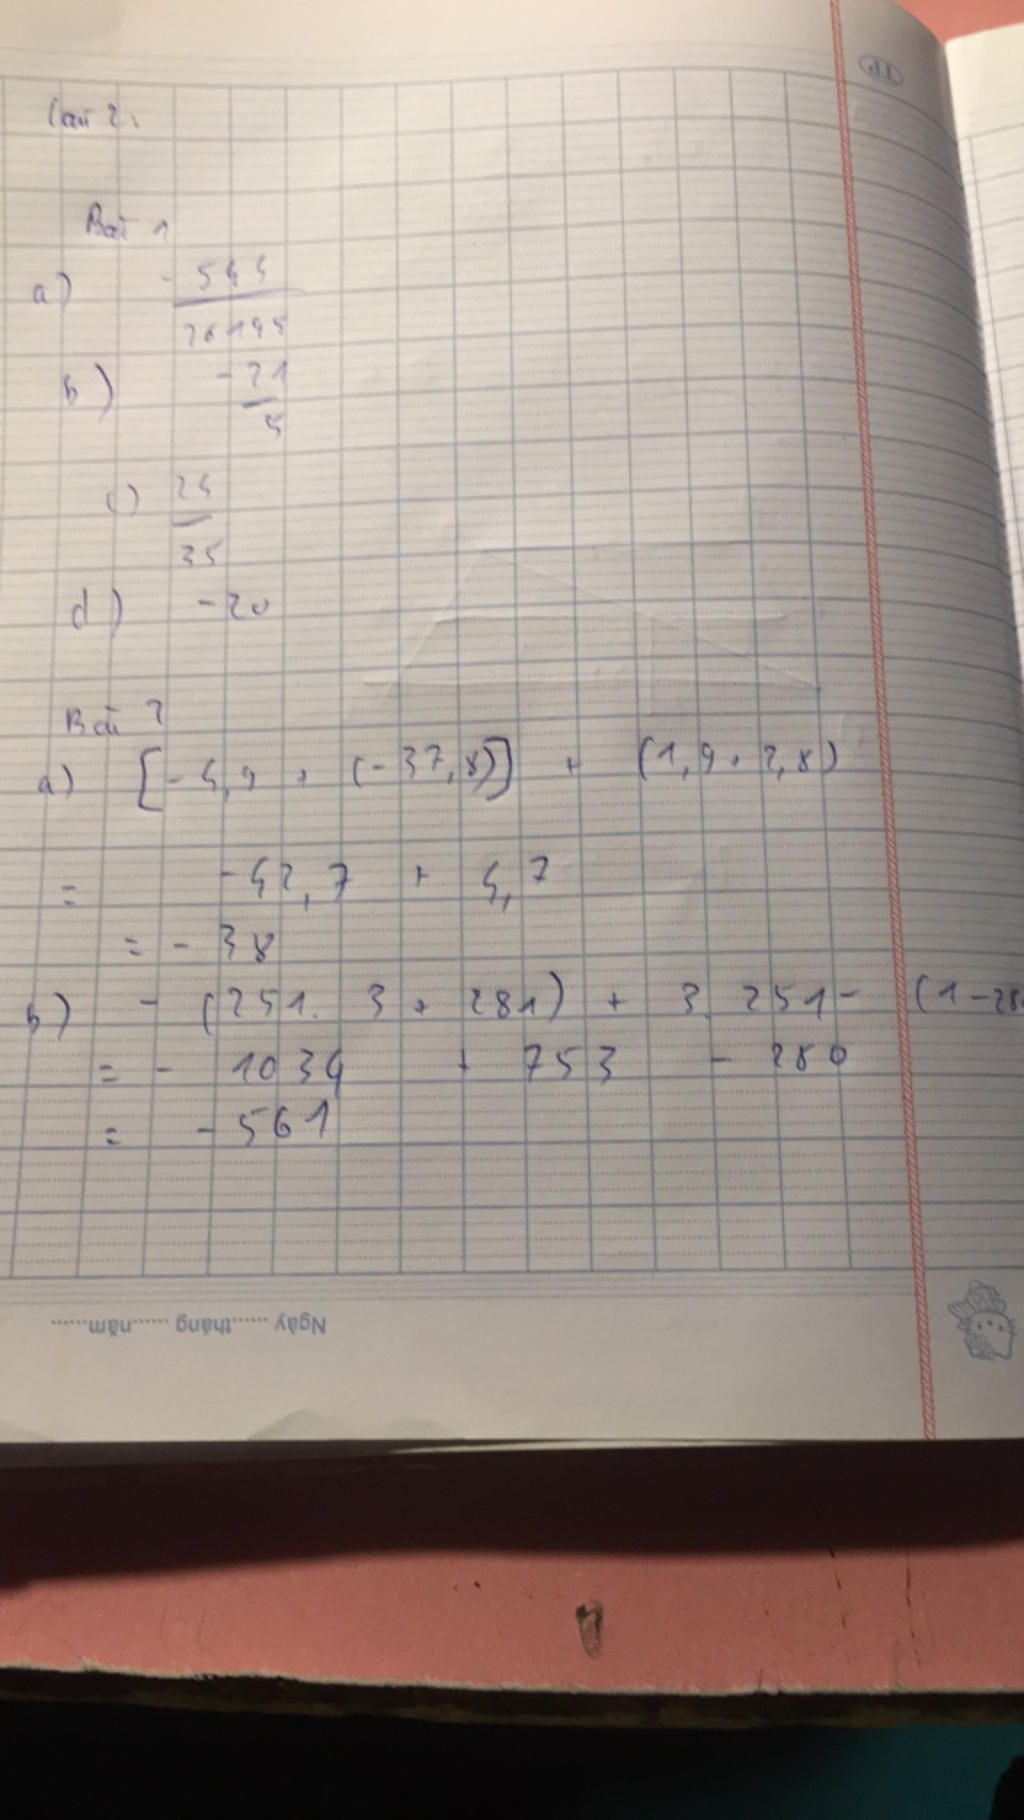 Bài 1
a) - 544
26195
b) - 21
5
c) 24
35
d) - 20
Bài 2
a) [-4,9 + (-37,8)] + (1,9 + 2,8)
= -42,7 + 4,7
= - 38
b) - (251. 3 + 281) + 3. 251 - (1 - 28
= - 1034 + 753 - 280
= - 561
Ngày ......tháng ......năm......
TP